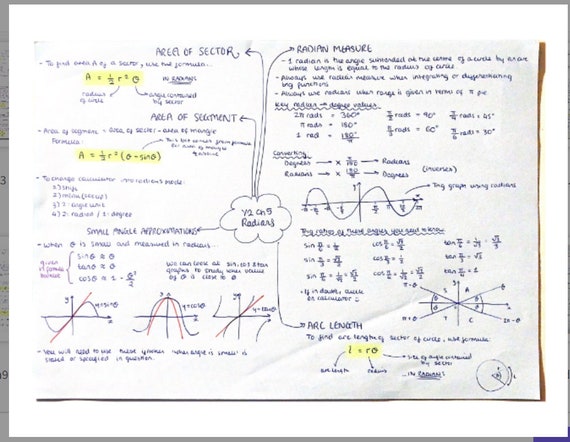 AREA OF SECTOR
- To find area A of a sector, use the formula...
A = 1/2 r² θ
IN RADIANS
radius of circle
angle contained by sector
AREA OF SEGMENT
- Area of segment = area of sector - area of triangle
Formula:
A = 1/2 r² (θ - sinθ)
- To change calculator into radians mode:
1) shift
2) menu (setup)
3) 2: angle unit
4) 2: radian / 1: degree
SMALL ANGLE APPROXIMATIONS
- When θ is small and measured in radians...
given in formula booklet
sinθ ≈ θ
tanθ ≈ θ
cosθ ≈ 1 - θ²/2
we can look at sin, cos & tan
graphs to study when value
of θ is close to 0
y=sinθ
y=cosθ
y=tanθ
- You will need to use these when angle is small is
stated or specified in question.
Y2 Ch5
Radians
RADIAN MEASURE
- 1 radian is the angle subtended at the centre of a circle by an arc
whose length is equal to the radius of circle.
- Always use radian measure when integrating or differentiating
trig functions
- Always use radians when range is given in terms of π
Key radian → degree values
2π rads = 360°
π rads = 180°
1 rad = 180°/π
π/2 rads = 90°
π/3 rads = 60°
π/4 rads = 45°
π/6 rads = 30°
Converting
Degrees → × π/180 → Radians
Radians → × 180/π → Degrees
(inverses)
Trig graph using radians
Trig ratios of these angles you need to know
sin π/6 = 1/2
cos π/6 = √3/2
tan π/6 = 1/√3 = √3/3
sin π/3 = √3/2
cos π/3 = 1/2
tan π/3 = √3
sin π/4 = 1/√2 = √2/2
cos π/4 = 1/√2 = √2/2
tan π/4 = 1
- If in doubt, check
on calculator
π-θ
θ
S
A
T
C
π+θ
2π-θ
ARC LENGTH
To find arc length of sector of circle, use formula:
l = rθ
arc length
radius
size of angle contained
by sector
IN RADIANS